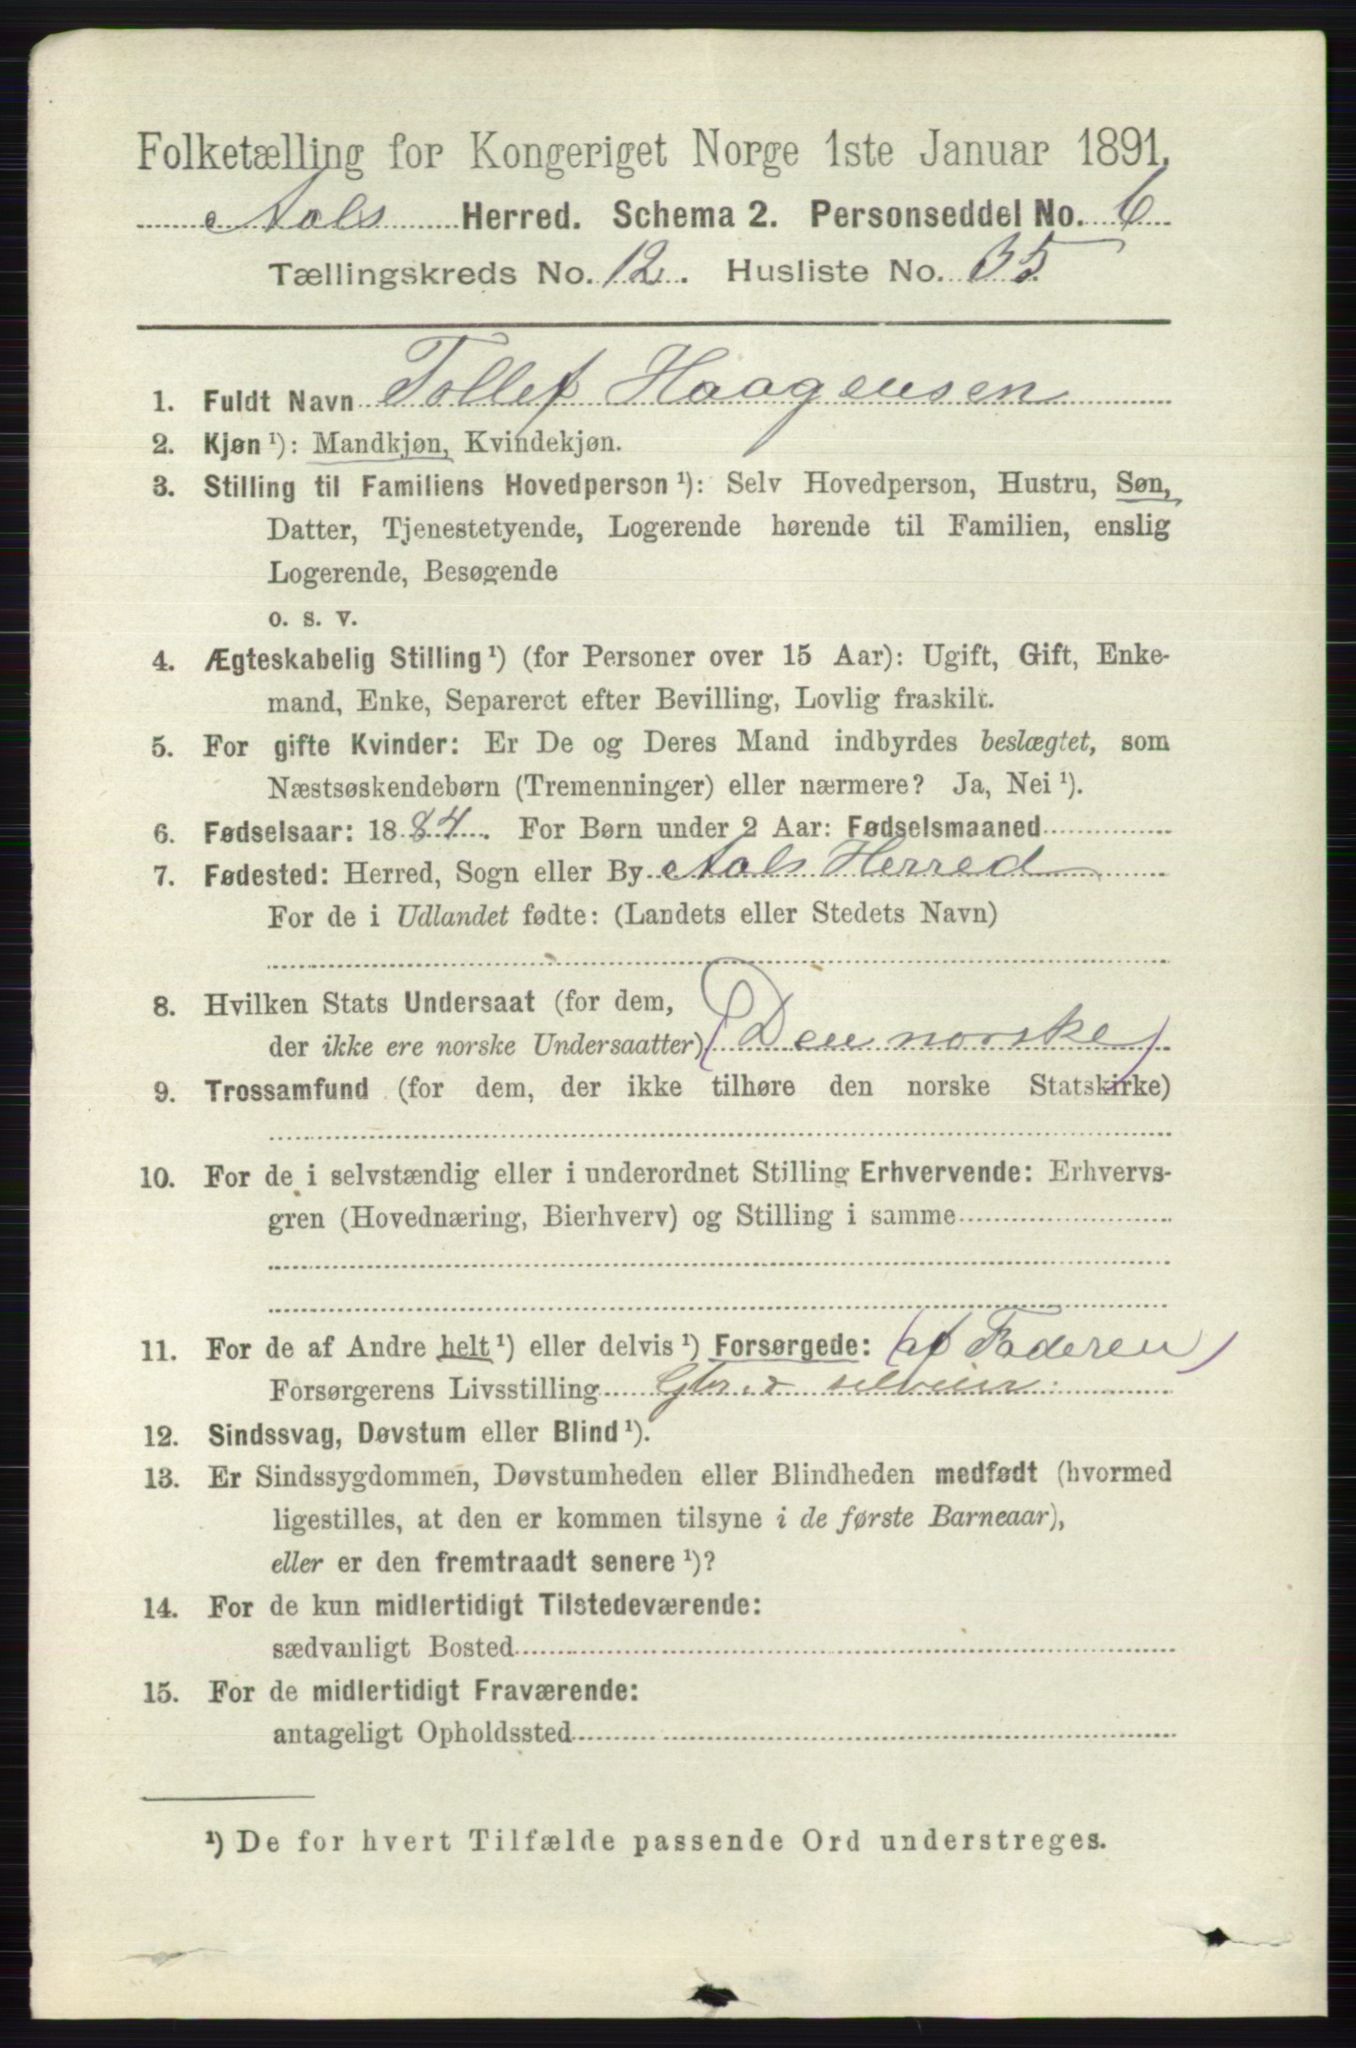 Folketælling for Kongeriget Norge 1ste Januar 1891.
Aals Herred. Schema 2. Personseddel No. 6
Tællingskreds No. 12. Husliste No. 35.
1. Fuldt Navn Tollef Haagensen
2. Kjøn ¹): Mandkjøn, Kvindekjøn.
3. Stilling til Familiens Hovedperson ¹): Selv Hovedperson, Hustru, Søn,
Datter, Tjenestetyende, Logerende hørende til Familien, enslig
Logerende, Besøgende
o. s. v.
4. Ægteskabelig Stilling ¹) (for Personer over 15 Aar): Ugift, Gift, Enke-
mand, Enke, Separeret efter Bevilling, Lovlig fraskilt.
5. For gifte Kvinder: Er De og Deres Mand indbyrdes beslægtet, som
Næstsøskendebørn (Tremenninger) eller nærmere? Ja, Nei ¹).
6. Fødselsaar: 1884. For Børn under 2 Aar: Fødselsmaaned
7. Fødested: Herred, Sogn eller By Aals Herred
For de i Udlandet fødte: (Landets eller Stedets Navn)
8. Hvilken Stats Undersaat (for dem,
der ikke ere norske Undersaatter) (Den norske)
9. Trossamfund (for dem, der ikke tilhøre den norske Statskirke)
10. For de i selvstændig eller i underordnet Stilling Erhvervende: Erhvervs-
gren (Hovednæring, Bierhverv) og Stilling i samme
11. For de af Andre helt ¹) eller delvis ¹) Forsørgede: (af Faderen)
Forsørgerens Livsstilling Gbr. selveier
12. Sindssvag, Døvstum eller Blind ¹).
13. Er Sindssygdommen, Døvstumheden eller Blindheden medfødt (hvormed
ligestilles, at den er kommen tilsyne i de første Barneaar),
eller er den fremtraadt senere ¹)?
14. For de kun midlertidigt Tilstedeværende:
sædvanligt Bosted
15. For de midlertidigt Fraværende:
antageligt Opholdssted
¹) De for hvert Tilfælde passende Ord understreges.